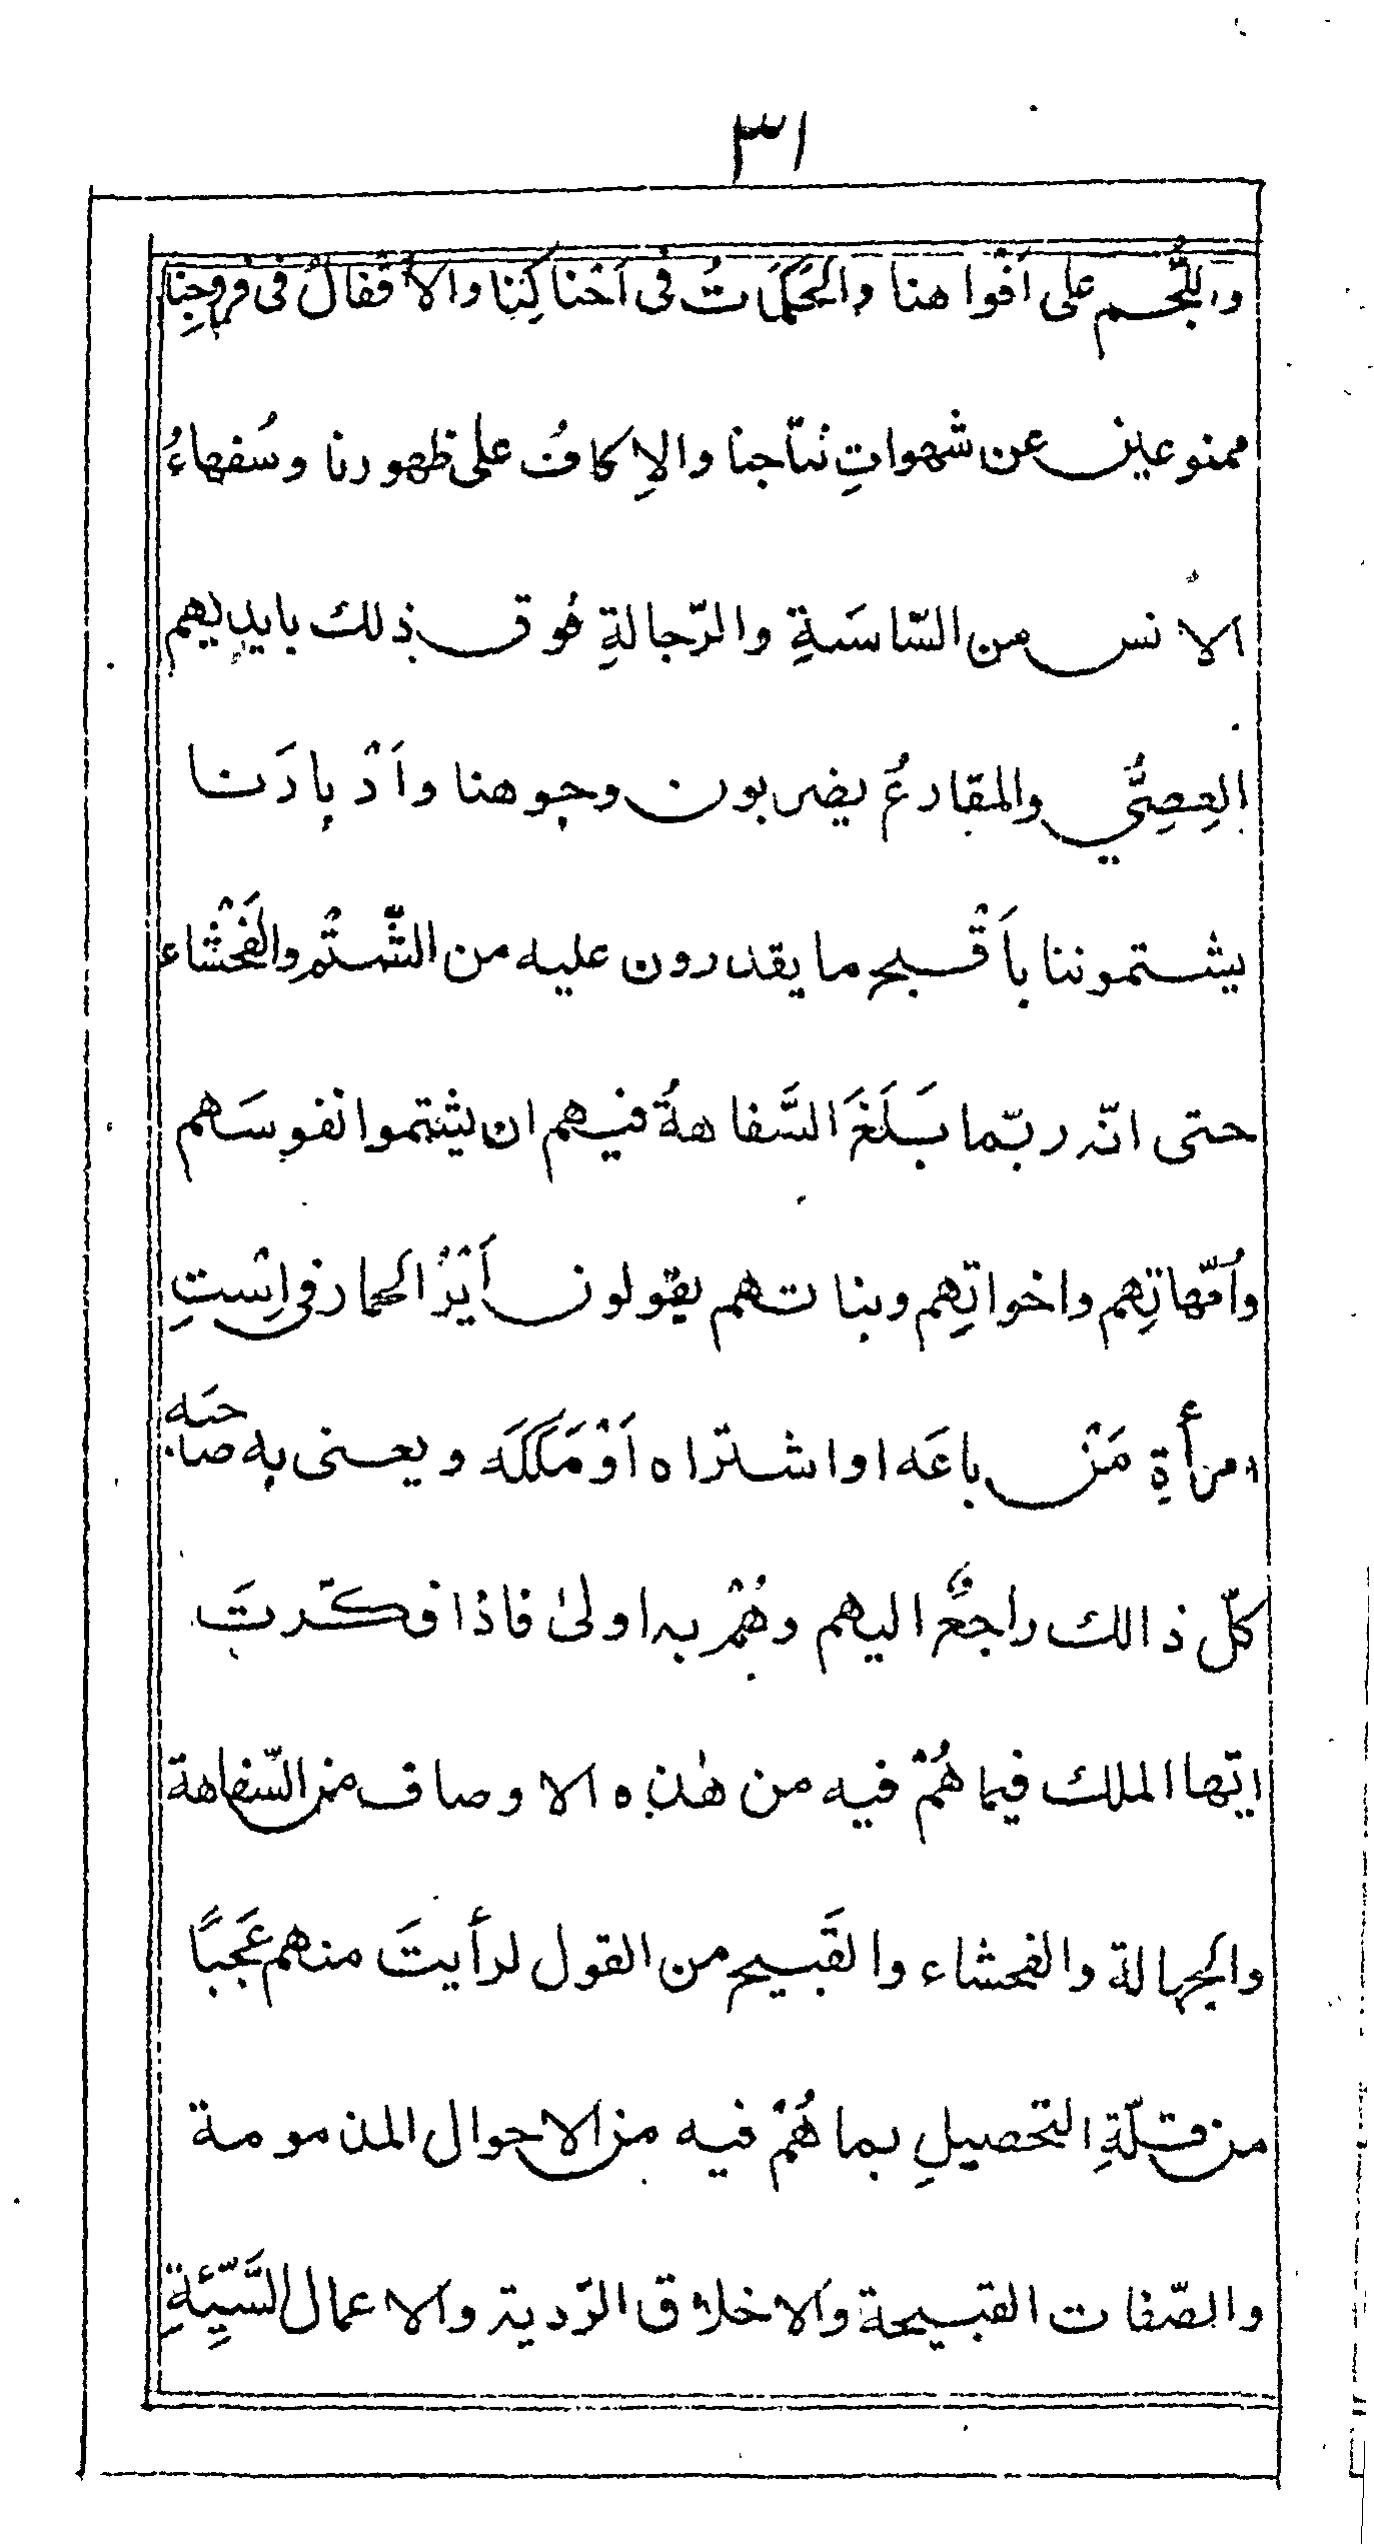 ٣١
واللُّجم على اَفْواهنا والحَكَمَاتُ فى اَحْناكِنا والاَقْفالُ فى فروجِنا
ممنوعين عن شهواتِ نتاجنا والاِكافُ على ظهورنا وسُفهاءُ
الانس من السّاسَةِ والرّجالةِ فوق ذلك بايديهم
العِصِيُّ والمقارعُ يضربون وجوهنا واَدْبارَنا
يشتموننا باَقْبح ما يقدرون عليه من الشَّتْم والفَحْشاء
حتى انّه ربّما بَلَغَ السَّفاهةُ فيهم ان يشتموا نفوسَهم
واُمّهاتِهم واخواتِهم وبناتهم يقولون اَيْرُ الحمار فى اِسْتِ
امرأةِ مَنْ باعَه او اشتراه اَوْ مَلَكَه ويعنى به صاحبَه
كلّ ذالك راجعٌ اليهم وهُمْ به اولىٰ فاذا فكّرتَ
ايّها الملك فيما هُمْ فيه من هٰذه الاوصاف من السّفاهة
والجهالة والفحشاء والقَبيح من القول لرأيتَ منهم عَجَبًا
من قلّةِ التحصيلِ بما هُمْ فيه من الاحوال المذمومة
والصّفات القبيحة والاخلاق الرّدية والاعمال السَّيّئةِ